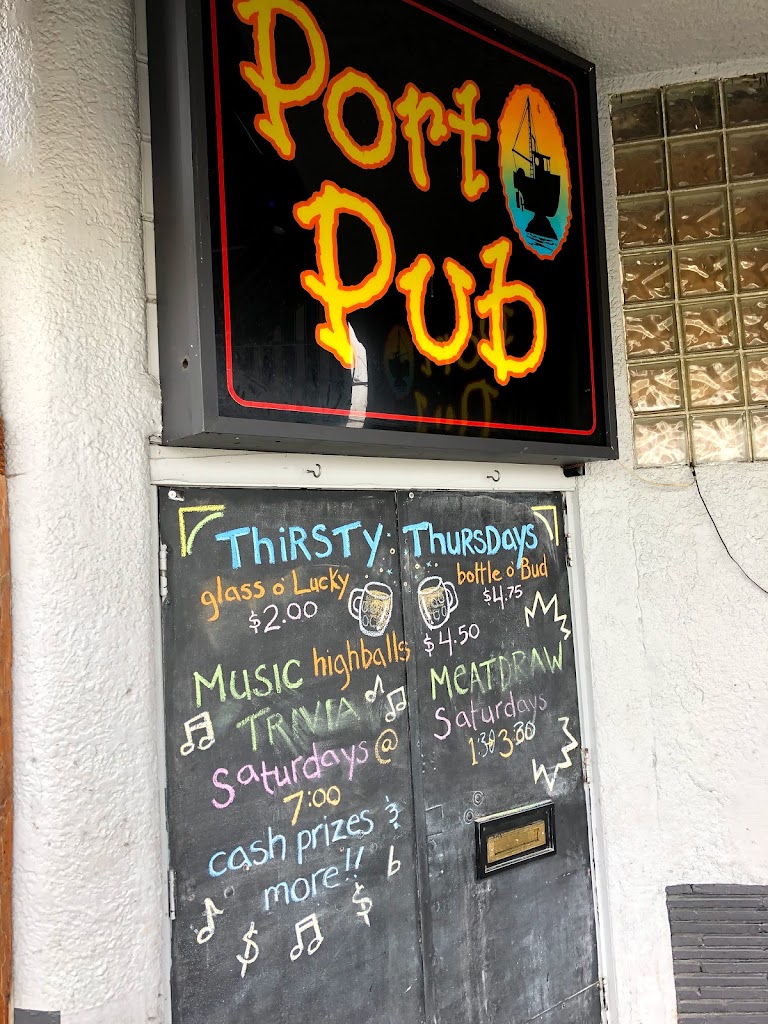 Port
Pub
THiRSTY THURSDAYS
glass o' Lucky
$2.00
bottle o' Bud
$4.75
highballs $4.50
MUSIC
TRIVIA
Saturdays @
7:00
cash prizes &
more!!
MEATDRAW
Saturdays
1:30 3:30